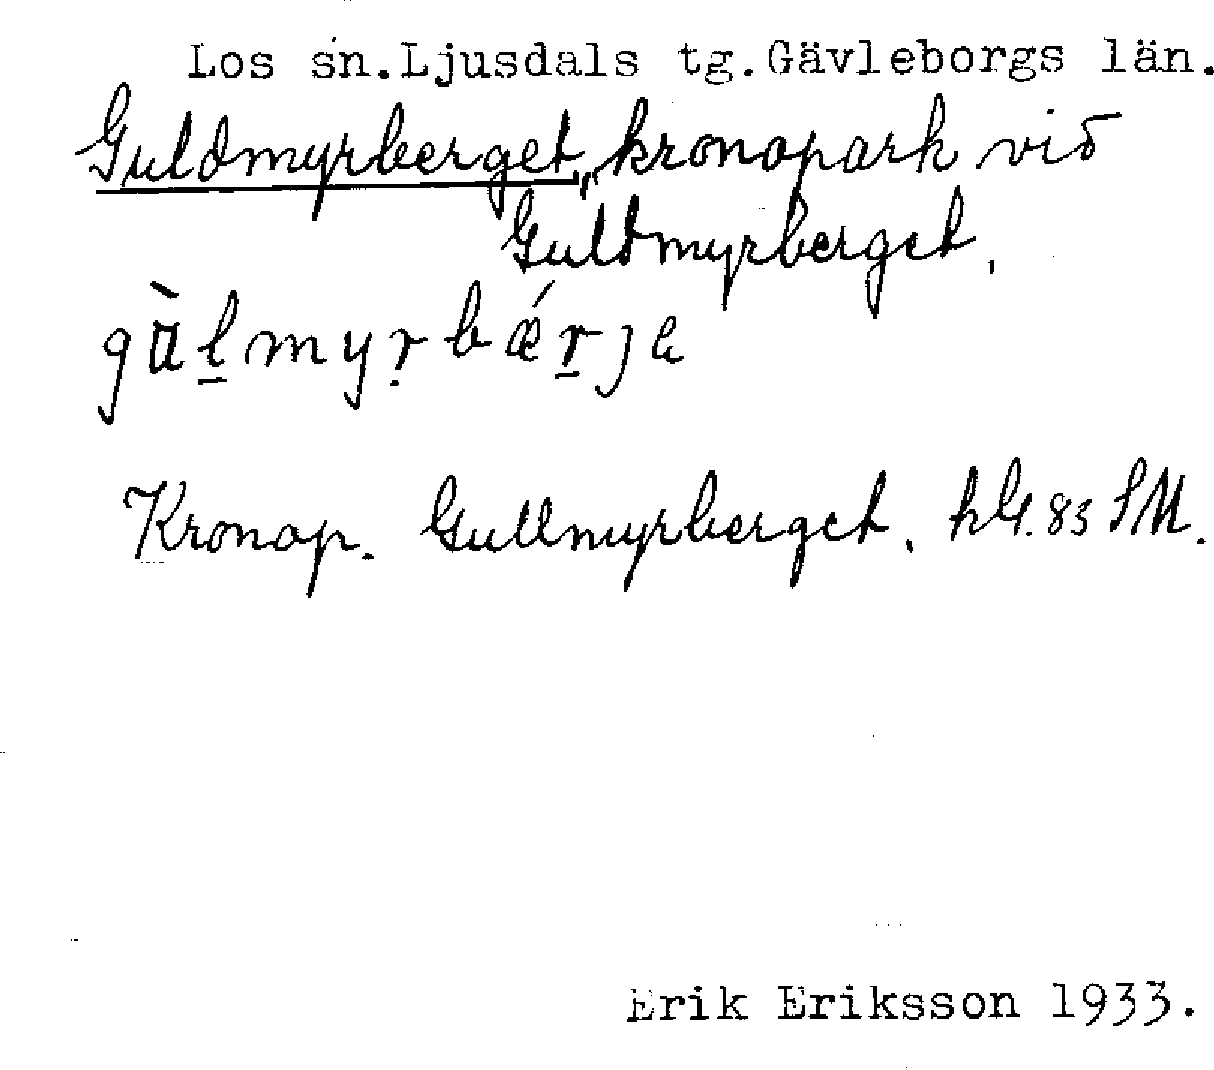 Los sn.Ljusdals tg.Gävleborgs län.
Guldmyrberget, kronopark vid
Guldmyrberget.
gù̱lmyṛbǽṟje
Kronop. Gullmyrberget, hG.83 SM.
Erik Eriksson 1933.